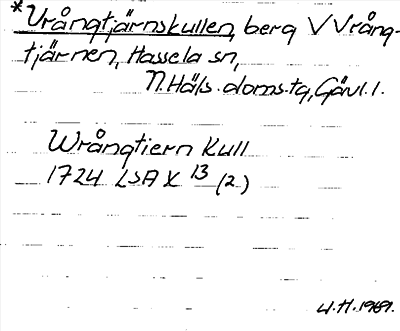 *Vrångtjärnskullen, berg V Vrång-
tjärnen, Hassela sn,
N.Häls. doms.tg, Gävl.l.
Wrångtiern Kull
1724 LSA X 13 (2.)
U.H. 1969.